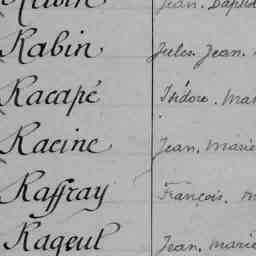 Rabin Jules. Jean.
Racapé Isidore. Mar
Racine Jean. Marie
Raffray François. M
Rageul Jean. Marie